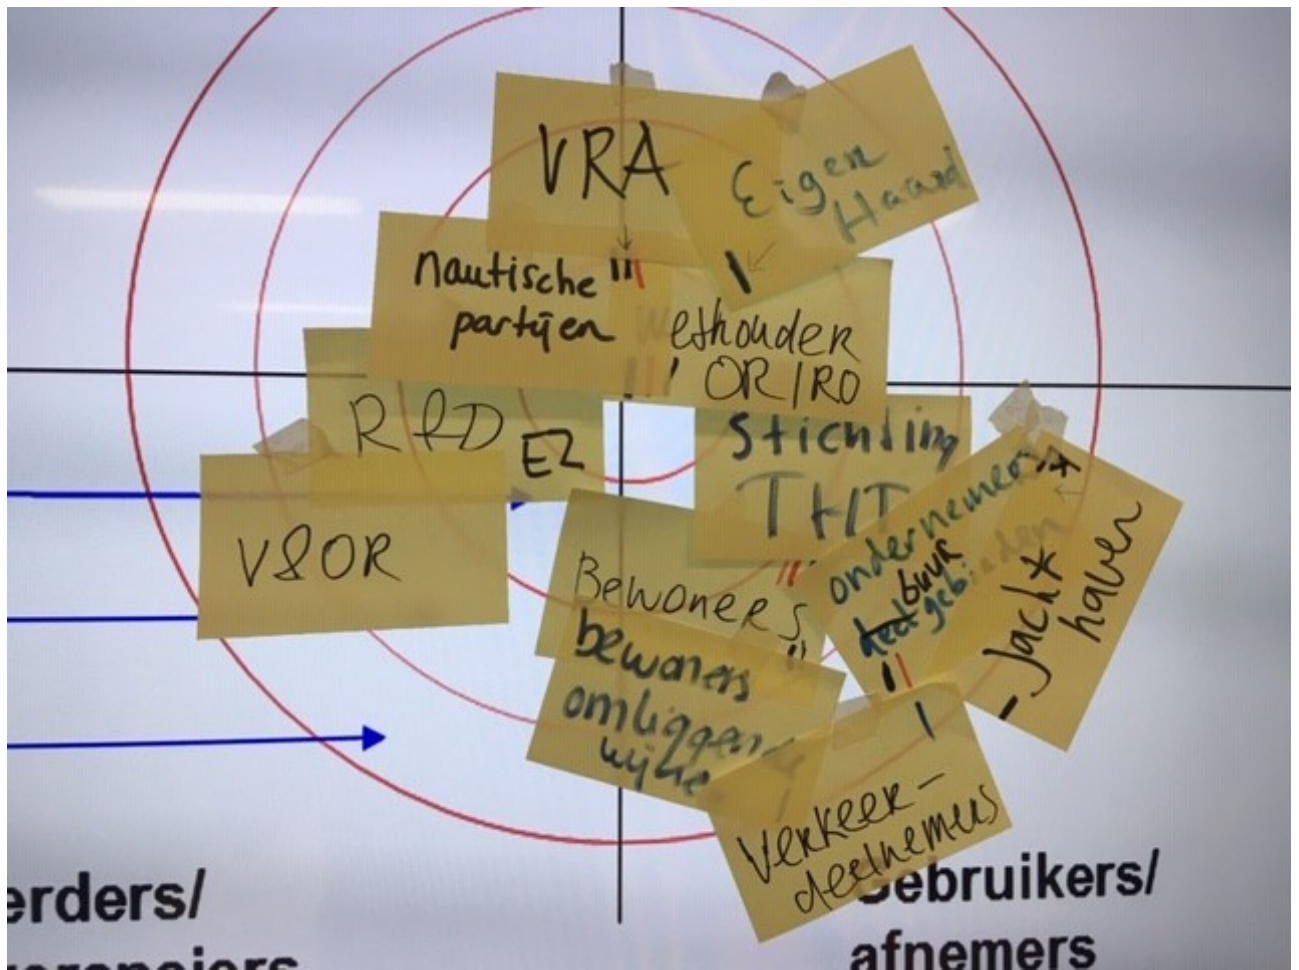 VRA
Eigen
Haard
nautische
partijen
wethouder
OR/RO
R&D
EZ
Stichting
THT
V&OR
ondernemers
buur
Jacht
haven
Bewoners
bewoners
omliggende
wijke
Verkeer-
deelnemers
erders/
Gebruikers/
afnemers